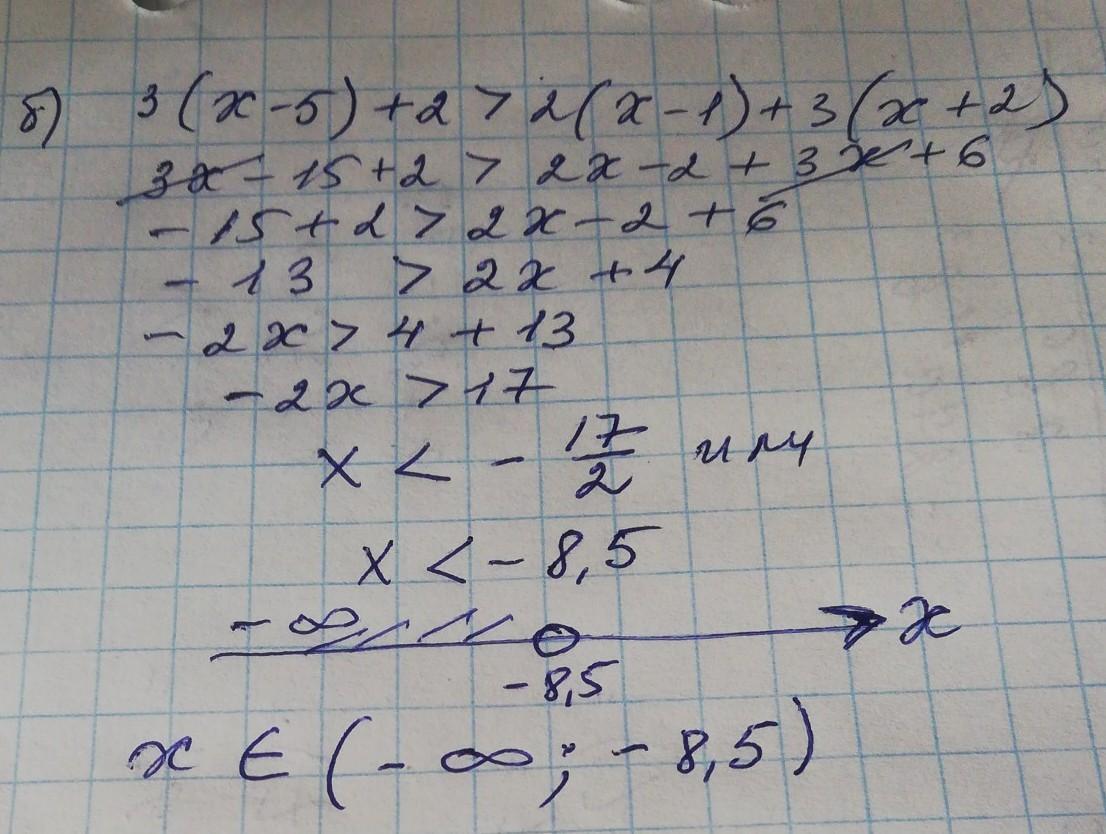 б) 3(x-5)+2 > 2(x-1)+3(x+2)
3x-15+2 > 2x-2+3x+6
-15+2 > 2x-2+6
-13 > 2x+4
-2x > 4+13
-2x > 17
x < -17/2 или
x < -8,5
-∞ x
-8,5
x ∈ (-∞; -8,5)